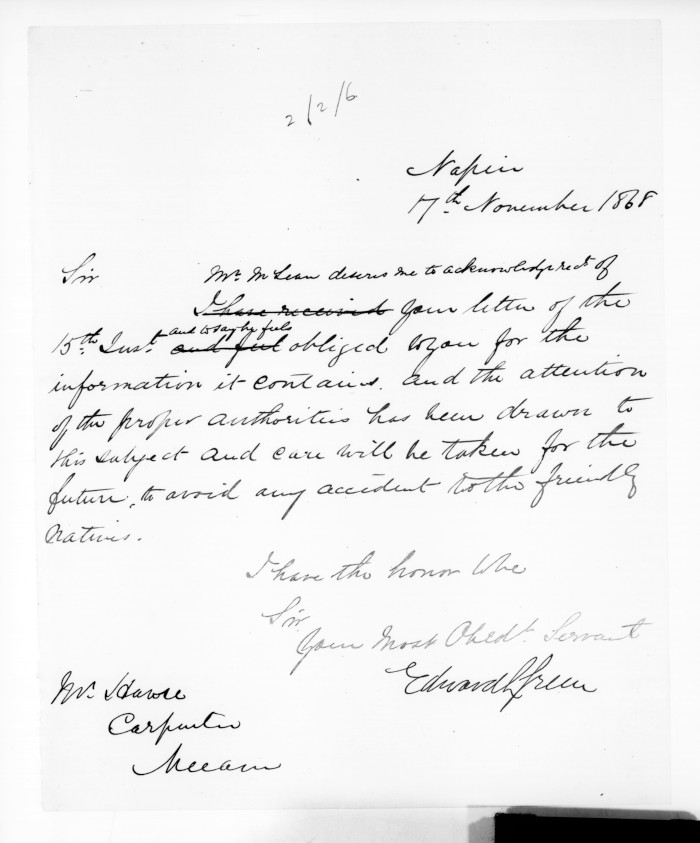 2/2/6
Napier
17th November 1868
Sir Mr. McLean desires me to acknowledge rect. of
I have received your letter of the
15th Inst. and to say he feels and feel obliged to you for the
information it contains. and the attention
of the proper authorities has been drawn to
this subject and care will be taken for the
future, to avoid any accident to the friendly
natives.
I have the honor to be
Sir
Your Most Obedt. Servant
Edward Green
Mr. Howse
Carpenter
Meeanee